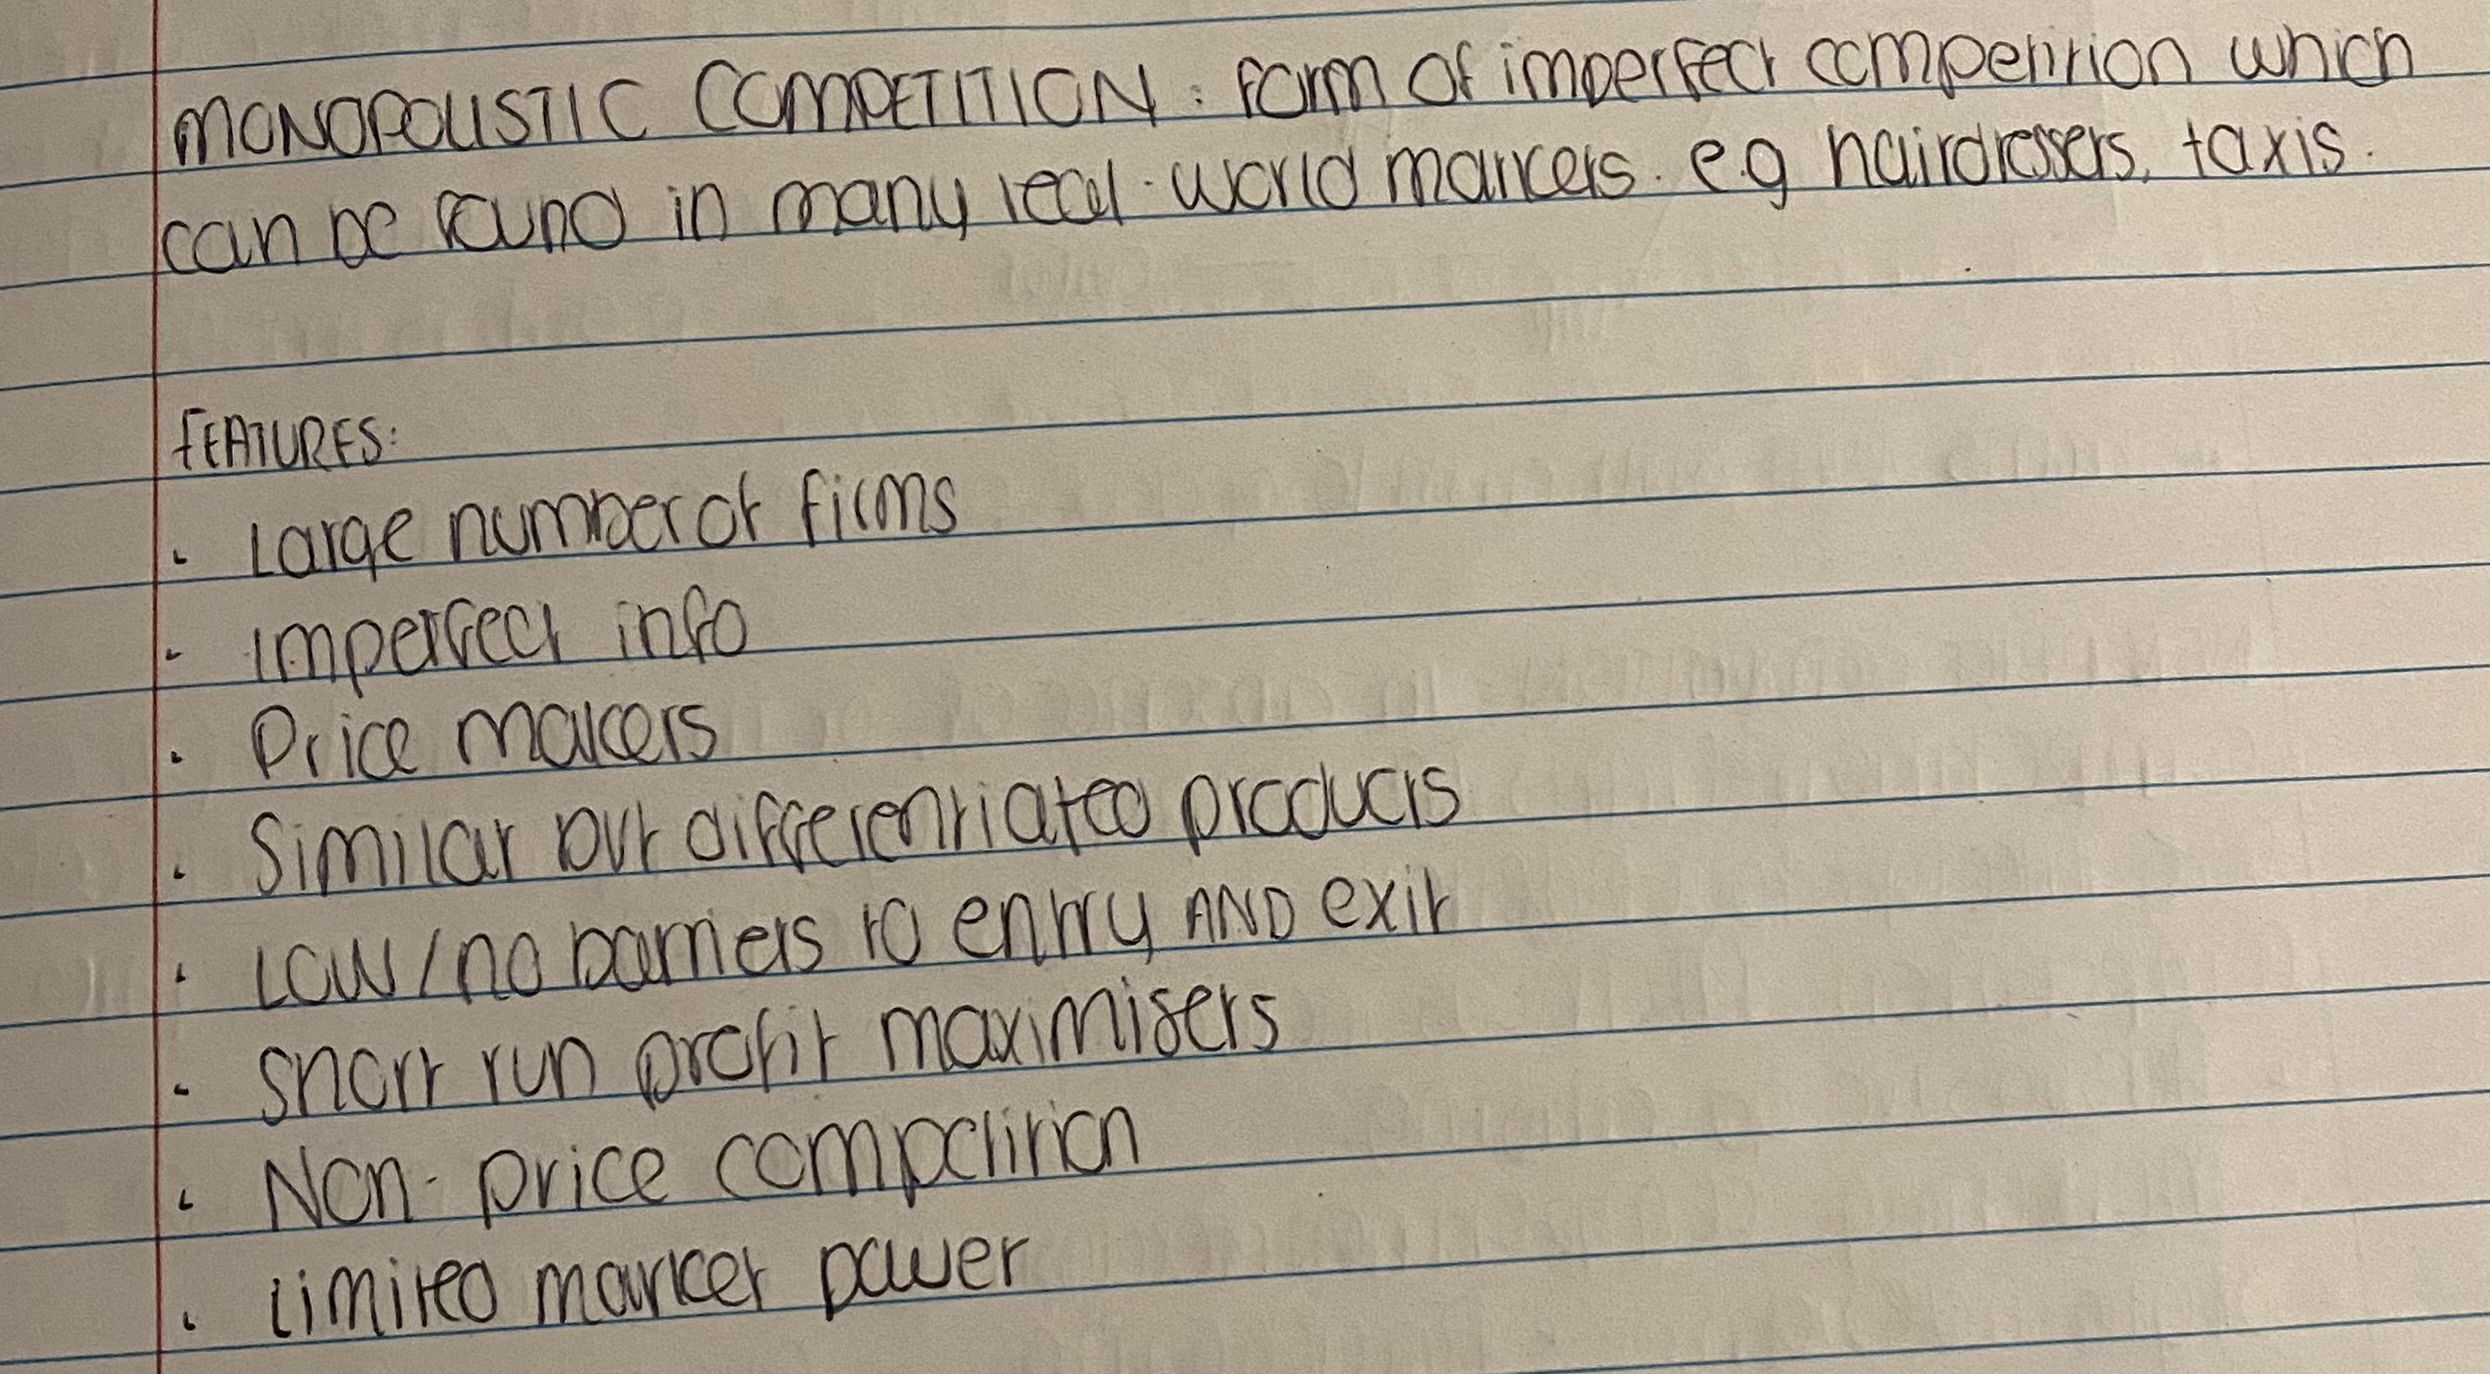 MONOPOLISTIC COMPETITION : form of imperfect competition which
can be found in many real-world markets. e.g hairdressers, taxis.
FEATURES:
· Large number of firms
· Imperfect info
· Price makers
· Similar but differentiated products
· Low/no barriers to entry AND exit
· Short run profit maximisers
· Non-price competition
· Limited market power